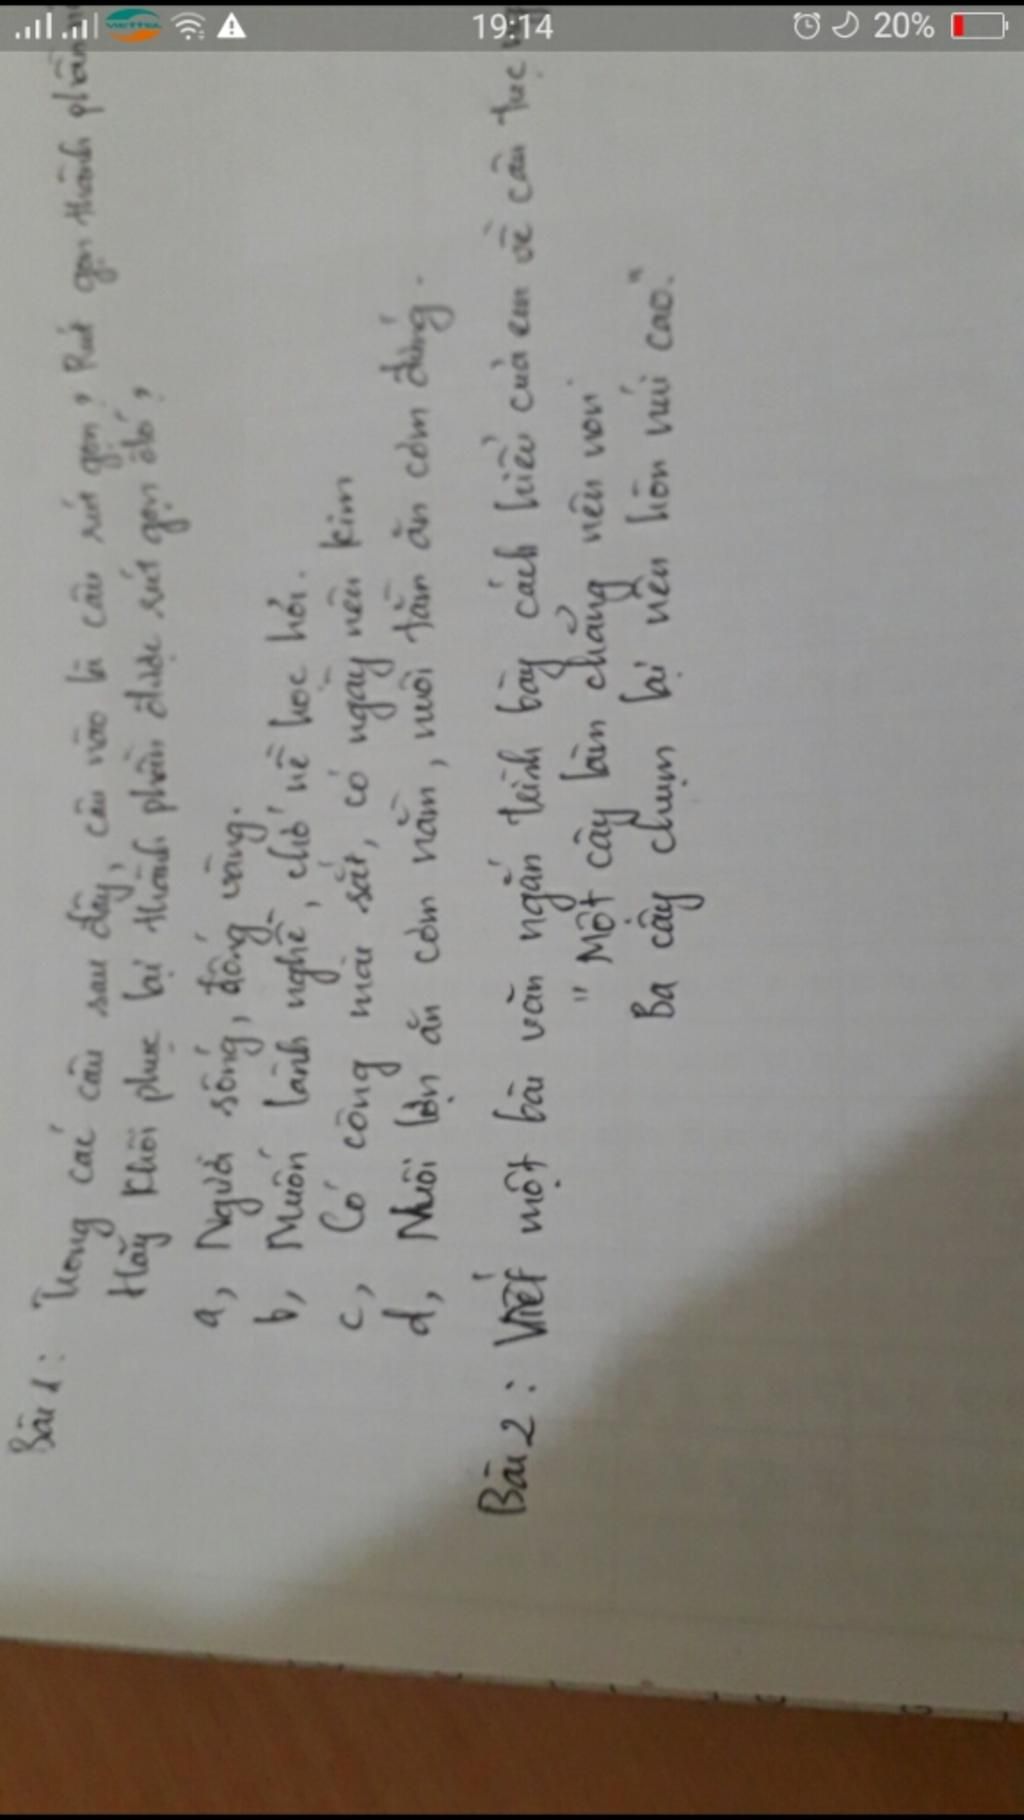 VIETTEL 19:14 20%
Bài 1: Trong các câu sau đây, câu nào là câu rút gọn? Rút gọn thành phần
Hãy khôi phục lại thành phần được rút gọn đó?
a, Người sống, đống vàng.
b, Muốn lành nghề, chớ nề học hỏi.
c, Có công mài sắt, có ngày nên kim
d, Nuôi lợn ăn cơm nằm, nuôi tằm ăn cơm đứng.
Bài 2: Viết một bài văn ngắn trình bày cách hiểu của em về câu tục
"Một cây làm chẳng nên non
Ba cây chụm lại nên hòn núi cao."